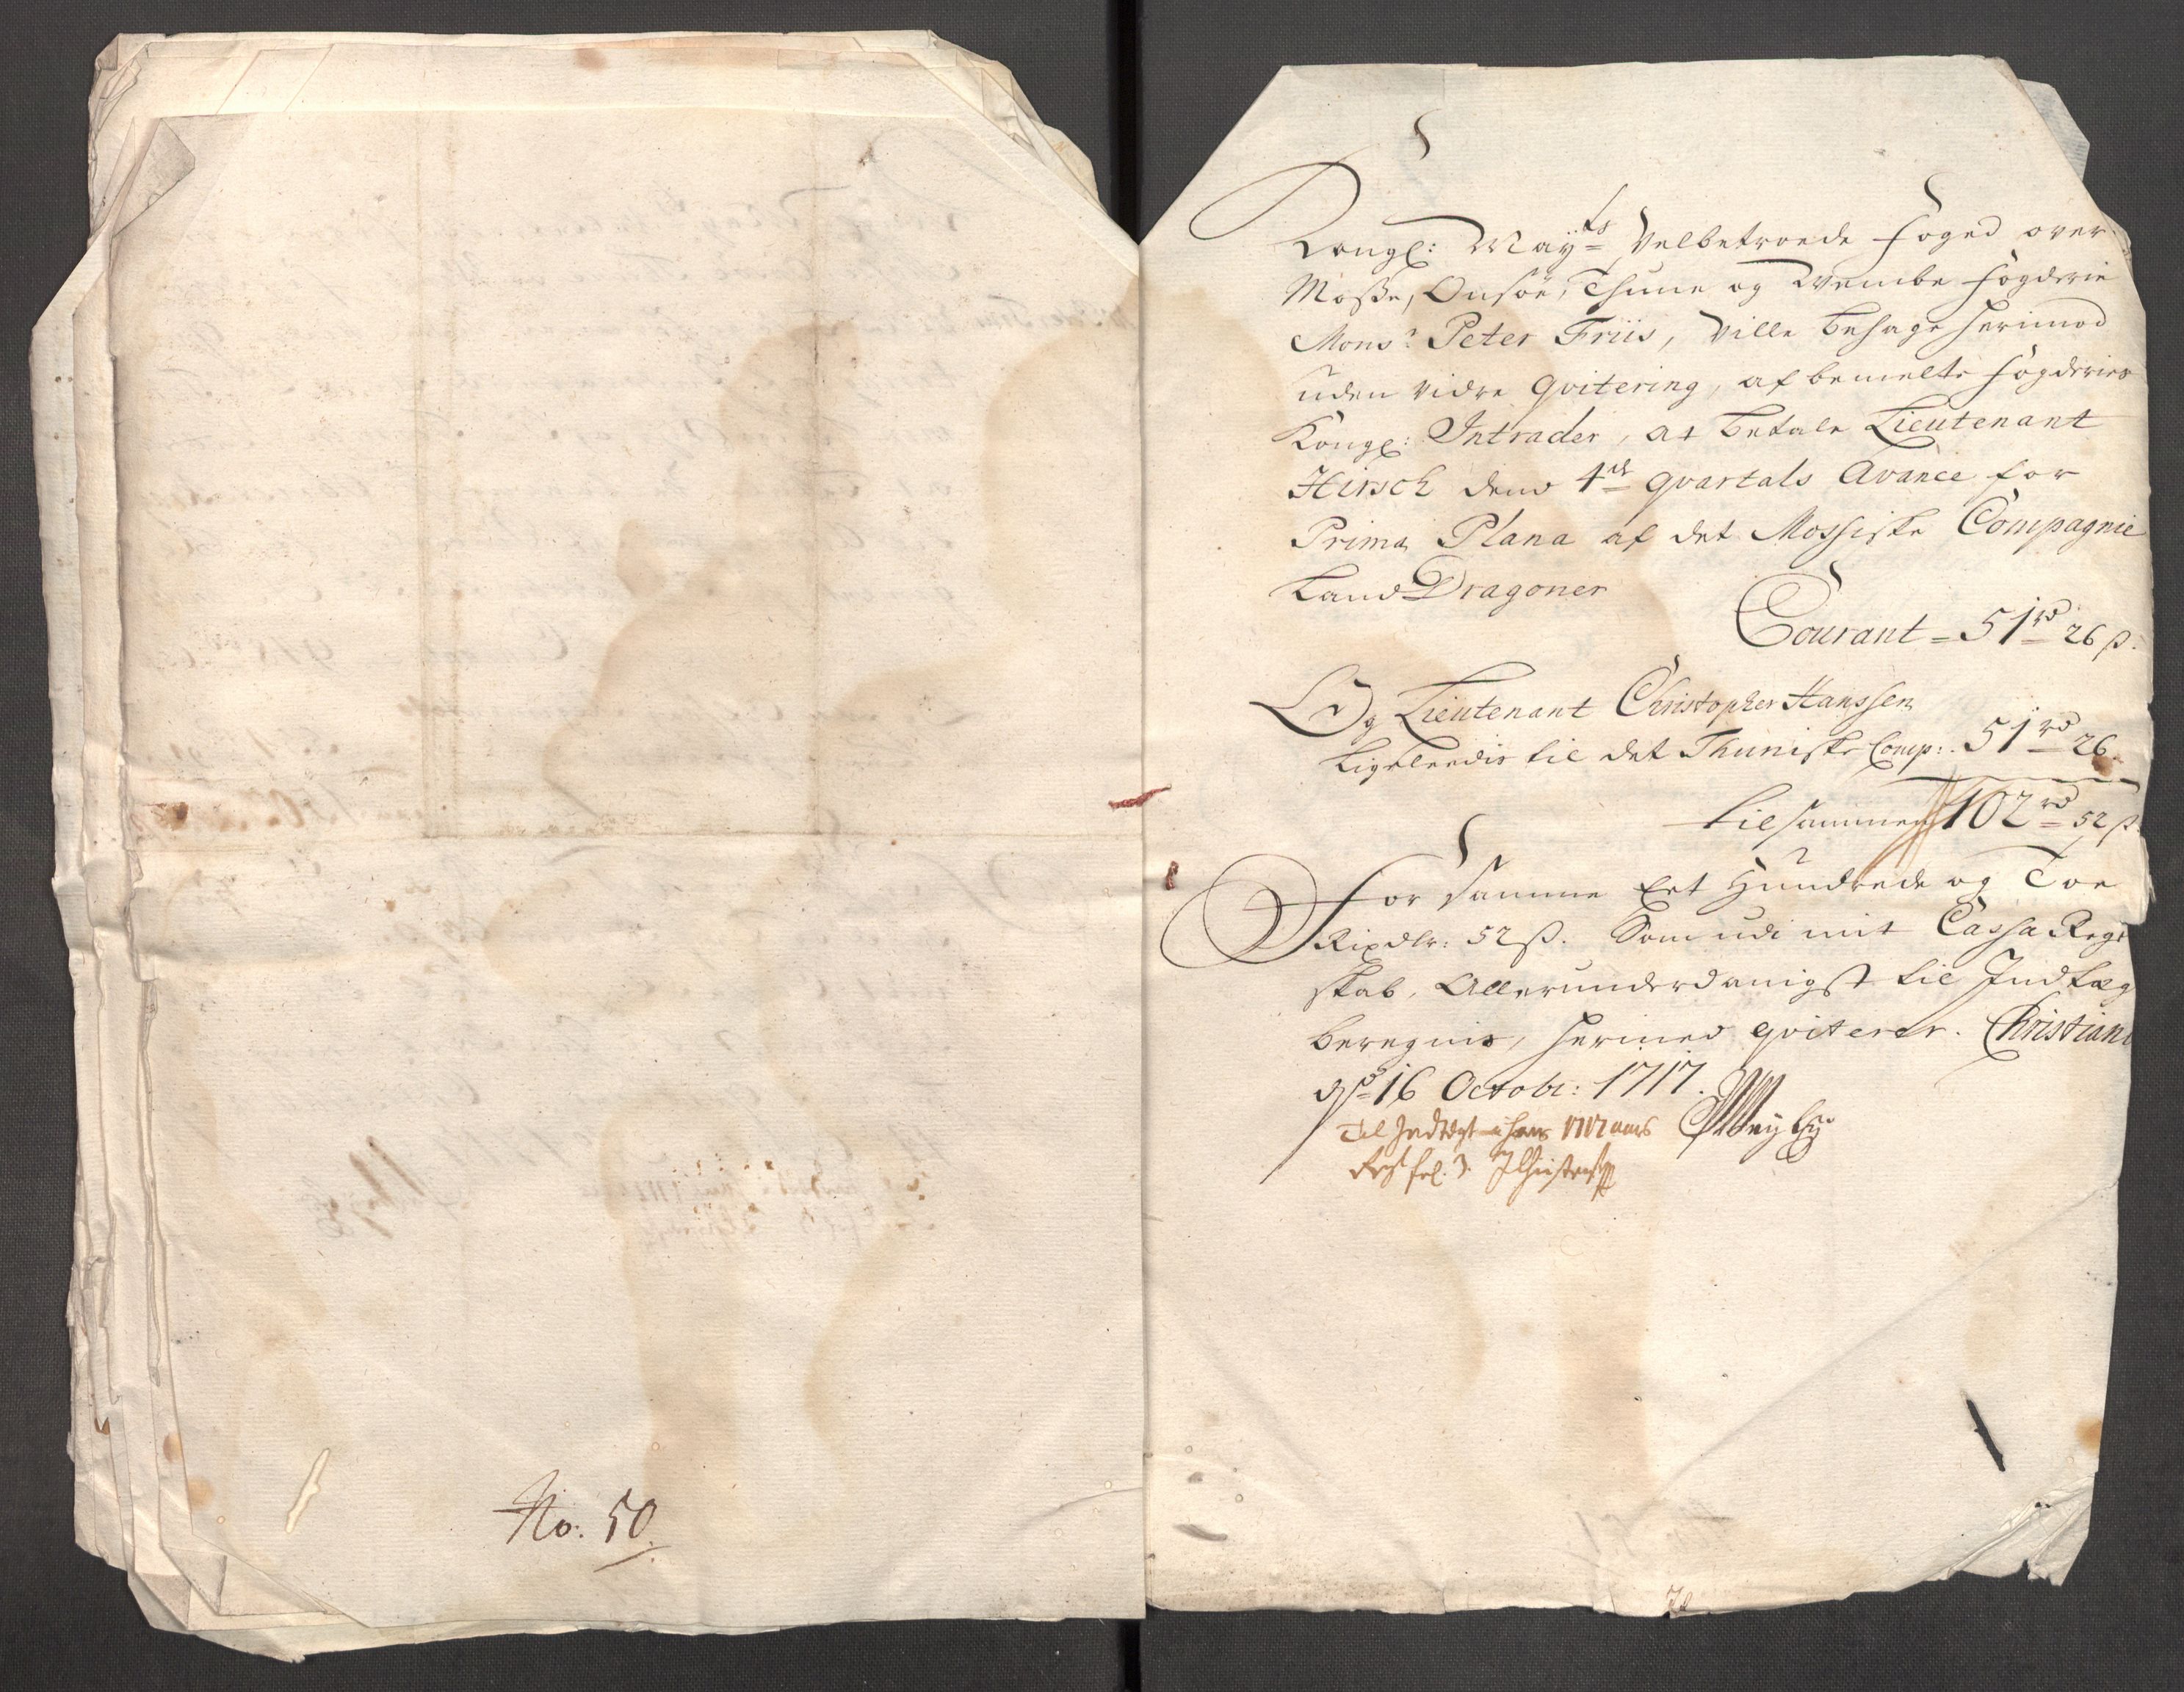 No: 50.
Kongl: Mayts Velbetroede Foged over
Mosse, Onsöe, Thune og Wembe Fogderie
Monsr Peter Friis, Ville behage herimod
uden vidre qvitering, af bemelte Fogderies
Kongl: Intrader, at betale Lieutenant
Hirsch dend 4de qvartals Avance for
Prima Plana af det Mossiske Compagnie
Land Dragoner
Courant = 51rd 26 ß.
Og Lieutenant Christopher Hanssen
ligeleedis til det Thuniske Comp: 51rd 26
tilsammen 102rd 52 ß
For samme Eet Hundrede og Toe
Rixdlr: 52 ß. Som udi mit Cassa Reg
skab, Allerunderdanigst til Indtæg
beregnis, hermed qviterer. Christiani
dend 16 Octobr: 1717.
Til Indtegt i hans 1717 aars
fol. 3.